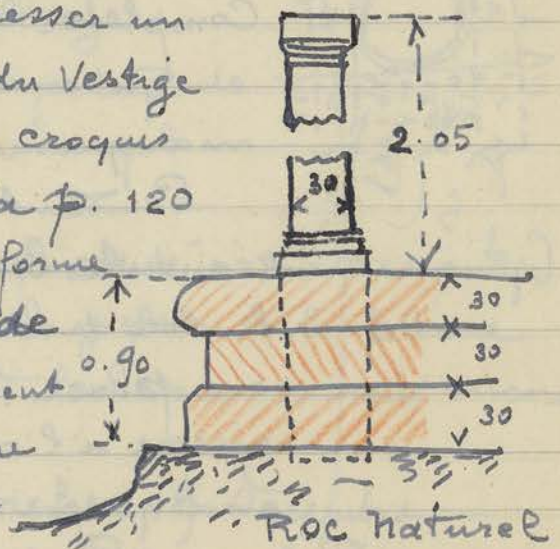 esser un
du Vestige
croquis
a p. 120
forme
de
ent
e
2.05
30
0.90
30
30
30
Roc naturel